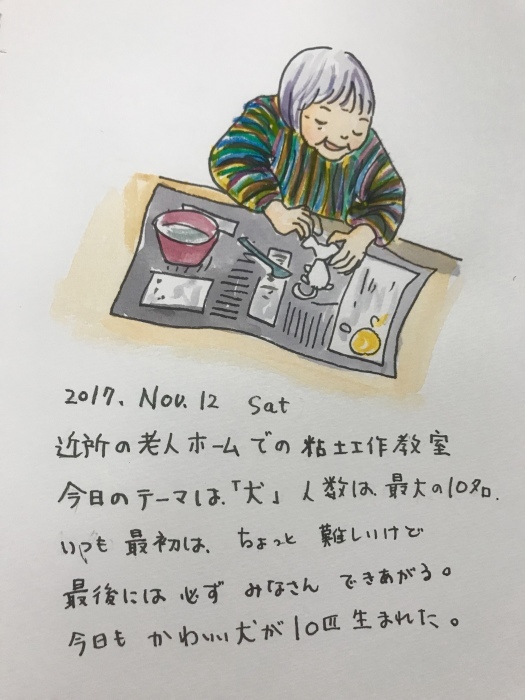 2017. Nov. 12 Sat
近所の老人ホームでの粘土工作教室
今日のテーマは、「犬」人数は、最大の10名.
いつも 最初は、ちょっと 難しいけど
最後には 必ず みなさん できあがる。
今日も かわいい犬が 10匹 生まれた。